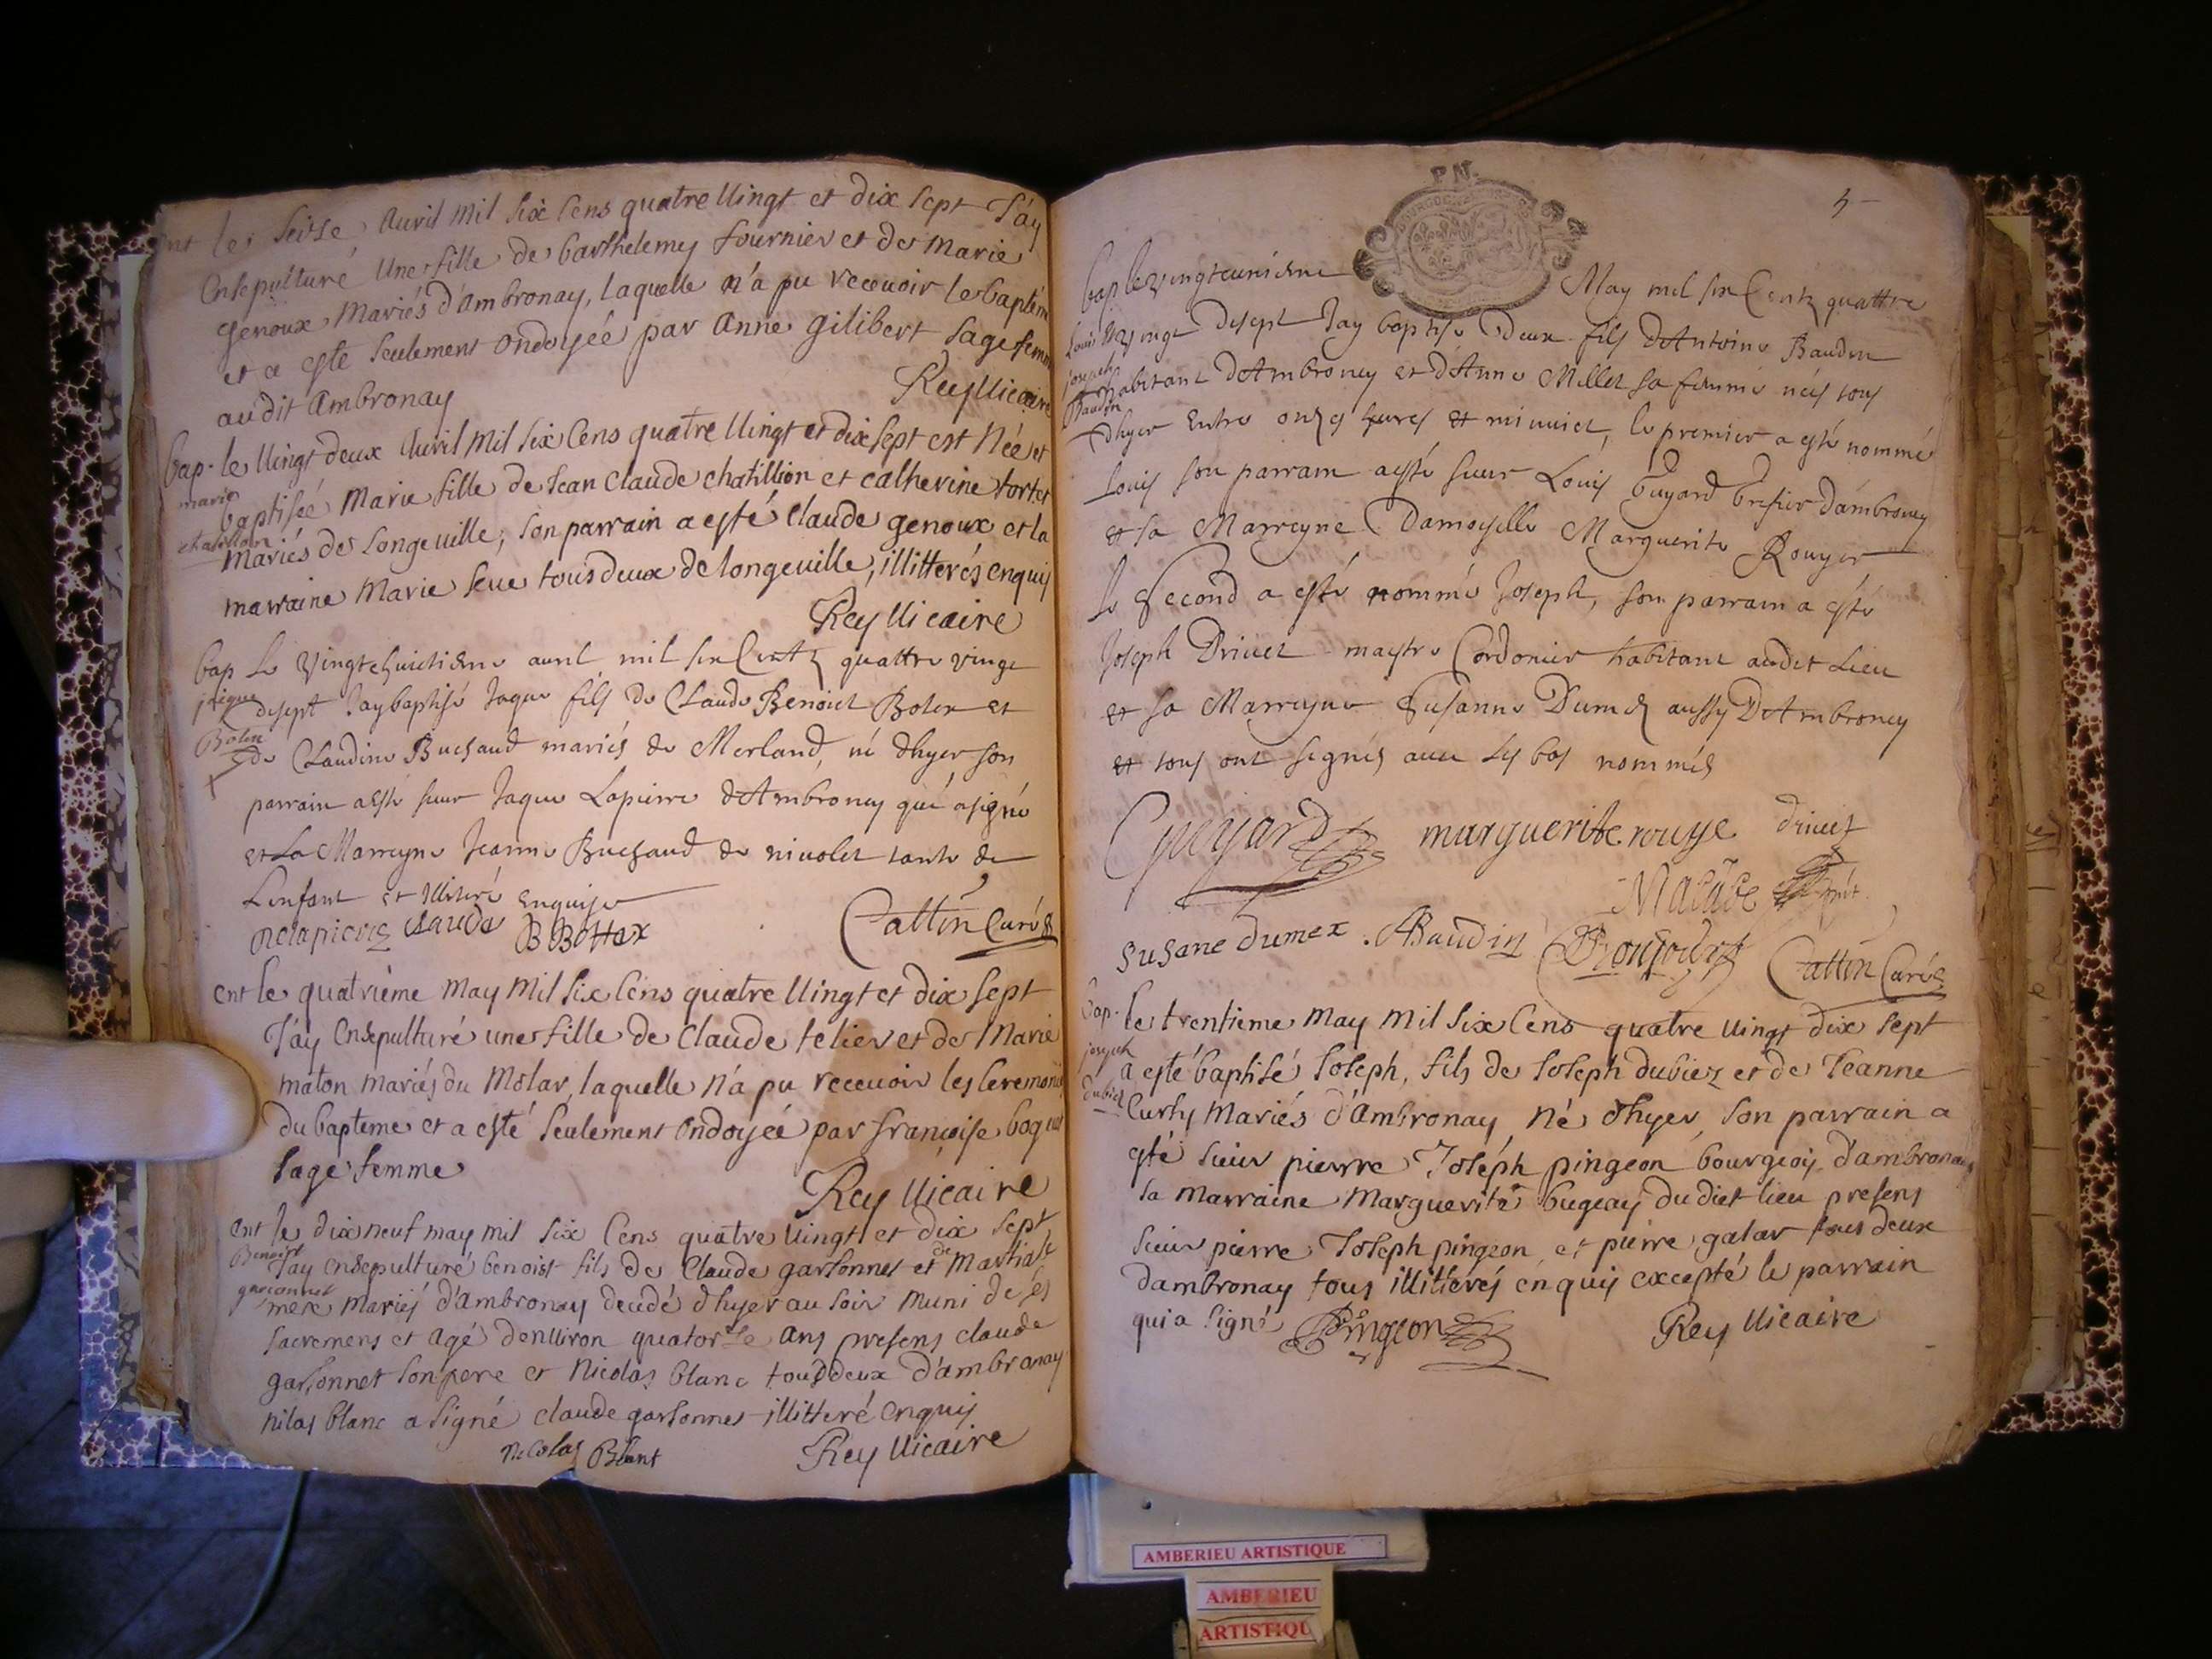 ent le seise Auril mil six cens quatre Uingt et dix sept J'ay
Ensepulturé Une fille de barthelemy fournier et de marie
genoux Mariés d'Ambronay, laquelle n'a pu receuoir le baptém
et a esté seulement ondoyée par Anne gilibert sage femm
au dit Ambronay Rey Uicaire
bap. le Uingt deux Auril mil six cens quatre Uingt et dix sept est Née et
marie baptisée Marie fille de Jean Claude chatillion et catherine tortet
chatillon mariés de longeuille, son parrain a esté Claude genoux et la
marraine Marie seue tous deux de longeuille, illitterés enquis
Rey Uicaire
bap Le vingtehuictiesme auril mil six Centz quattre vingt
jacque desept Jay baptisé Jaque fils de Claude Benoict Botex et
Botex de Claudine Buchaud mariés de Merland, né dhyer son
parrain a esté sieur Jaque Lapierre d'Ambronay qui a signé
et La Marreyne Jeanne Buchaud de niuolet tante de
Lenfant et illitiré enquise
Delapierre Claude B Bottex Cattin Curé
ent le quatriéme may Mil six cens quatre Uingt et dix sept
J'ay Ensepulturé une fille de Claude telier et de Marie
maton mariés du Molar, laquelle n'a pu receuoir les ceremonies
du bapteme et a esté seulement ondoyée par françoise
sage femme
Rey Uicaire
ent le dix neuf may mil six cens quatre Uingt et dix sept
Benoist J'ay ensepulturé benoist fils de Claude garsonnet et de Martia
garsonnet mere mariés d'ambronay decedé dhyer au soir muni de ses
sacremens et agé denuiron quatorse ans presens claude
garsonnet son pere et Nicolas blanc tous deux d'ambronay
nilas blanc a signé claude garsonnet illitteré enquis
nicolas Blant Rey Uicaire
P.N.
5
bap le vingteuniesme May mil six Centz quattre
Louis vingt desept Jay baptisé Deux fils d'Antoine Baudin
joseph habitant d'Ambronay et d'Anne Millet sa femme néis tous
Baudin dhyer entre onze heures et minuict, le premier a esté nommé
Louis son parrain a esté sieur Louis Guyard Grefier d'ambronay
et sa Marreyne Damoyselle Marguerite Rouyer
Le Second a esté nommé Joseph, son parrain a esté
Joseph Driuet maystre Cordonier habitant audit Lieu
et sa Marreyne Susanne Dumez aussy D'Ambronay
et tous ont signés auec Les bas nommés
Gueyard marguerite rouye driuet
susane dumex. ABaudin Cattin Curé
bap. le trentieme may mil six cens quatre uingt dix sept
joseph a esté baptisé Joseph, fils de Joseph dubiez et de Jeanne
dubiez Curty Mariés d'Ambronay né d'hyer, son parrain a
esté sieur pierre Joseph pingeon bourgeois d'ambronay
sa marraine Marguerite bugeay du diet lieu presens
sieur pierre Joseph pingeon et pierre galar tous deux
dambronay tous illitterés enquis excepté le parrain
qui a signé Pingeon Rey Uicaire
AMBERIEU ARTISTIQUE
AMBERIEU
ARTISTIQU